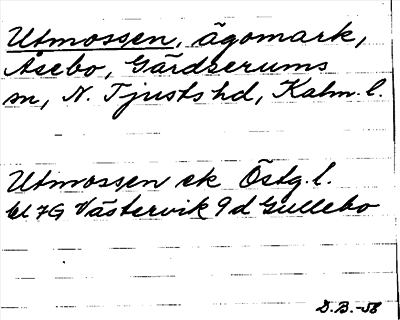 Utmossen, ägomark,
Åsebo, Gärdserums
sn, N. Tjusts hd, Kalm. l.
Utmossen ek Östg. l.
bl 7G Västervik 9d Gullebo
D.B.-56